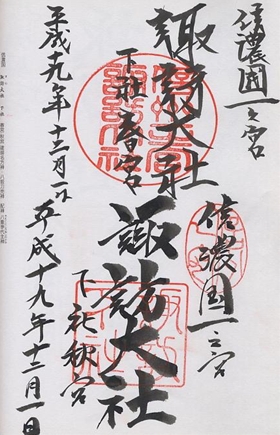 信濃國一之宮
諏訪大社
下社春宮
平成十九年十二月一日
信濃国一之宮
諏訪大社
下社秋宮
平成十九年十二月一日